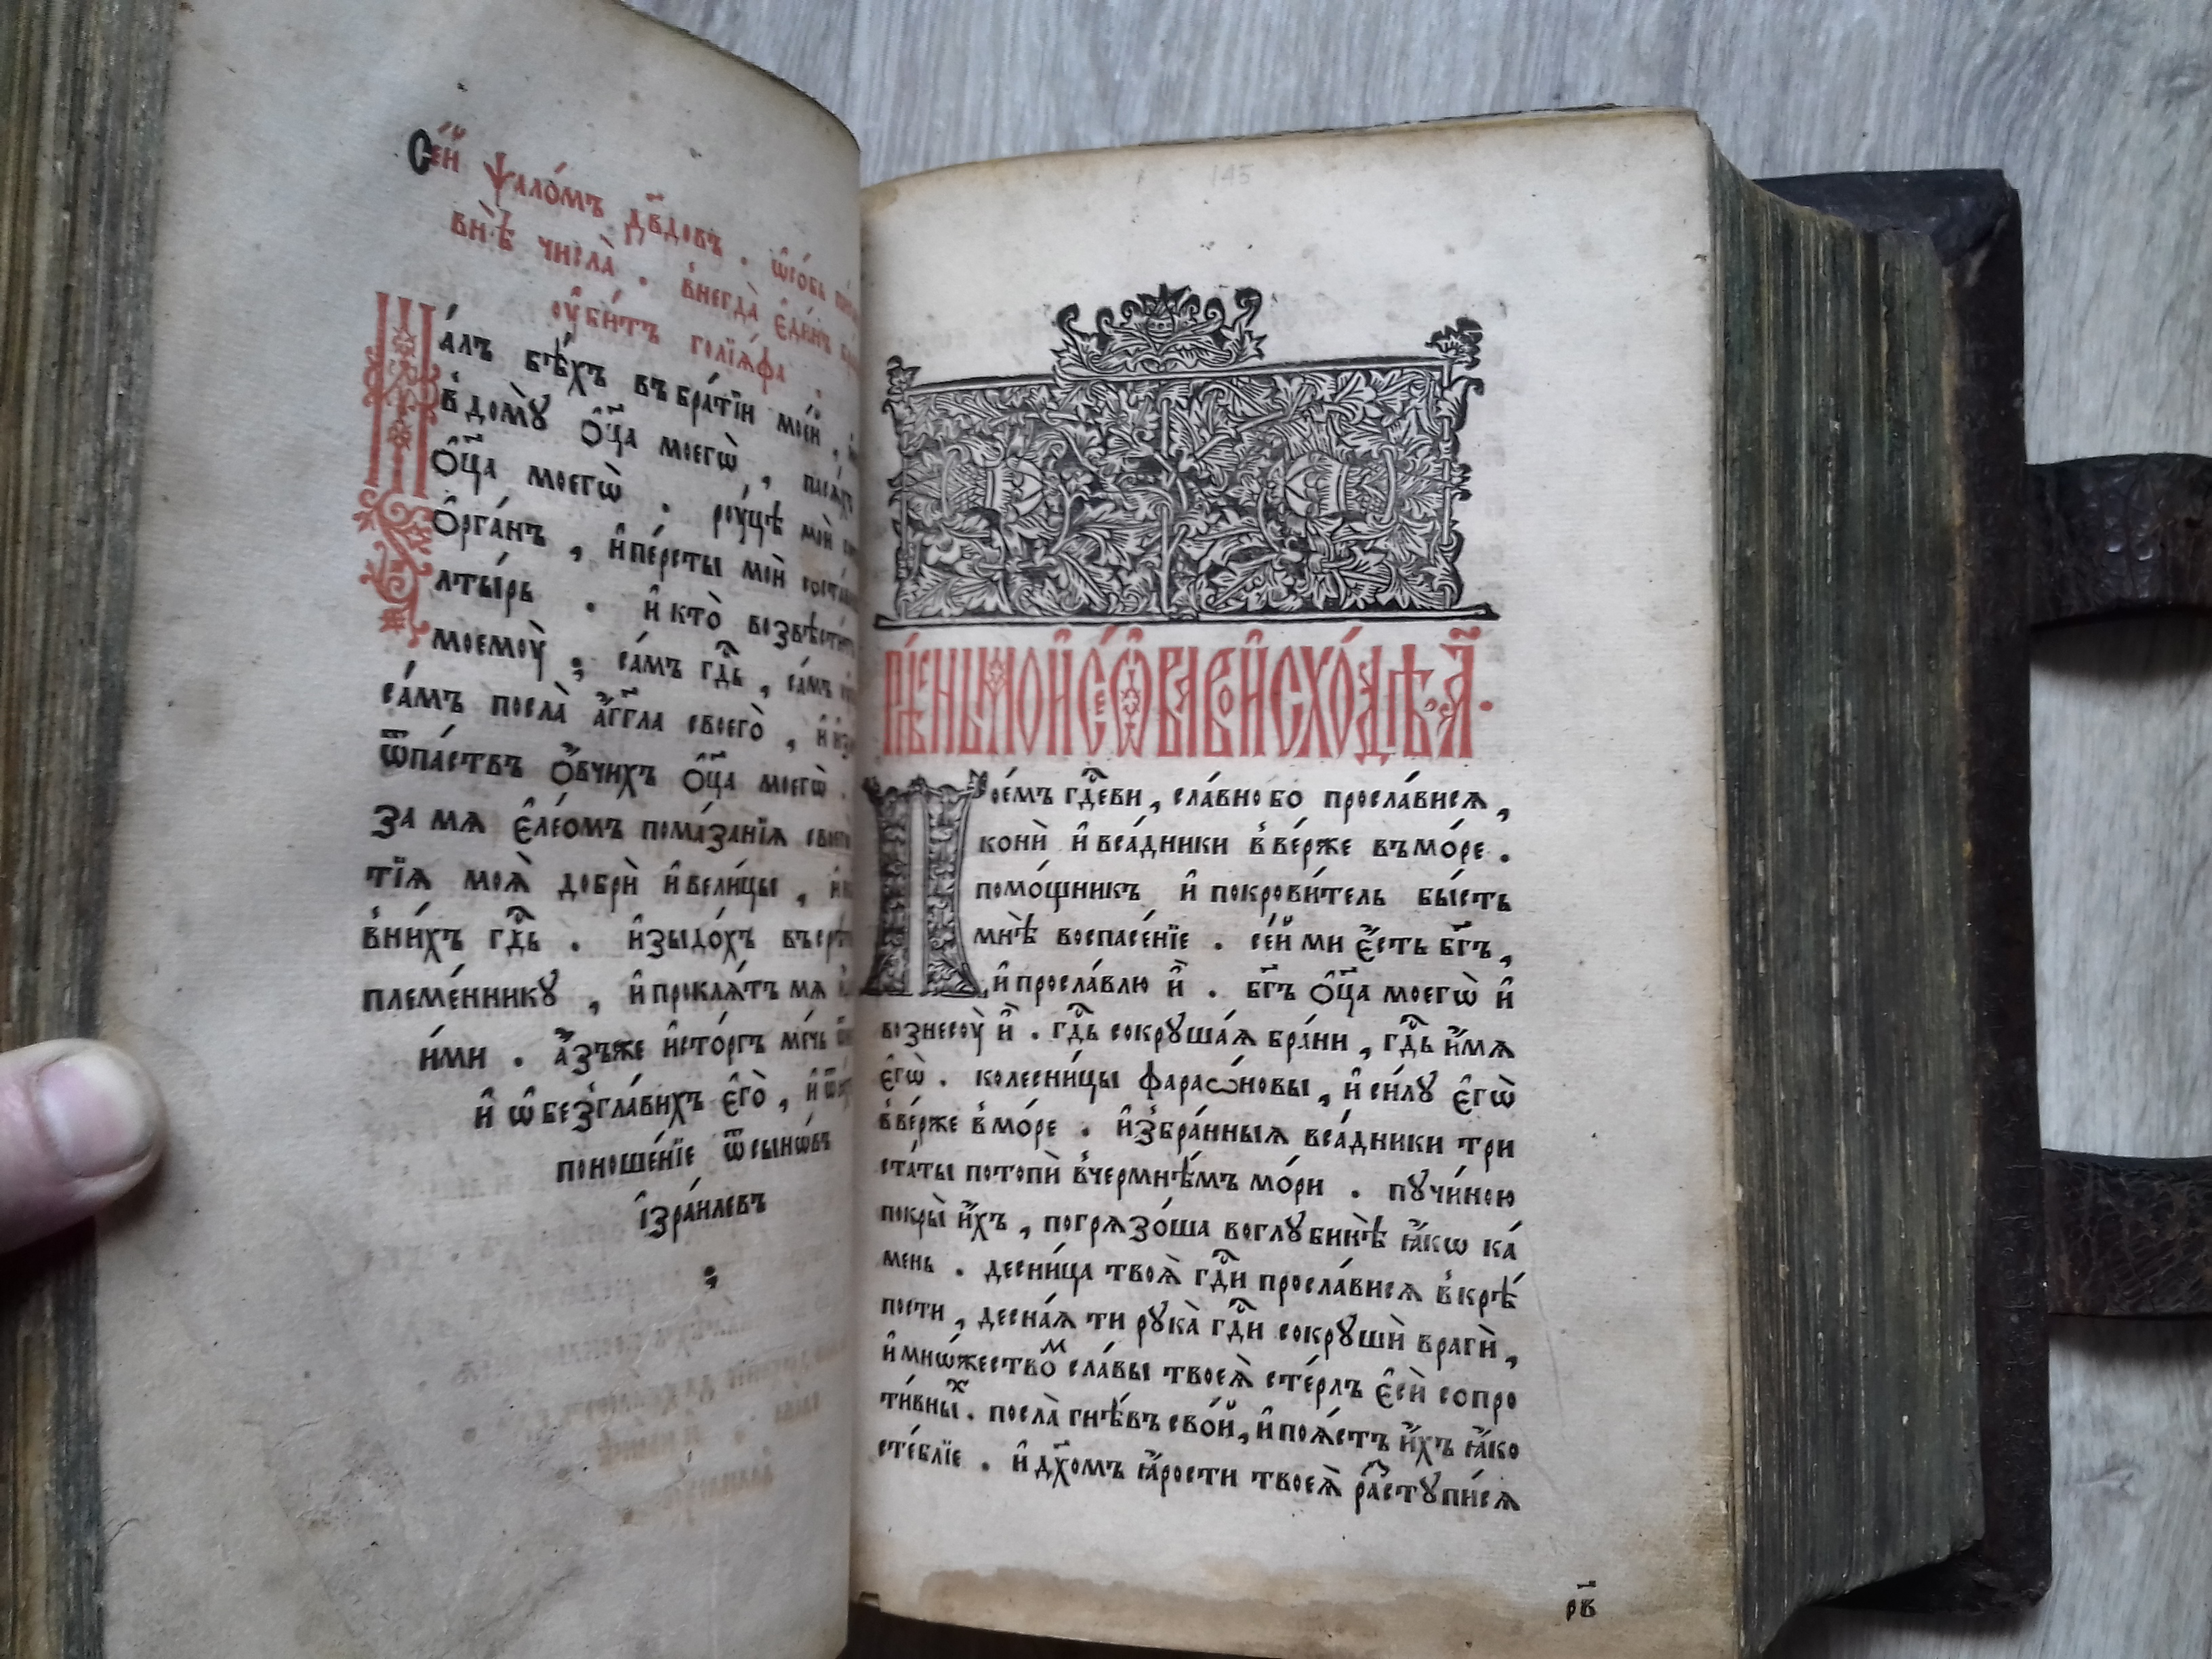 Се́й ѱало́мъ дв҃довъ . ѡ҆со́бь
внѣ̀ числа̀ . внегда̀ є҆ди́нъ
ᲂу҆би́тъ голїѧ́фа .
Ма́лъ бѣ́хъ въ бра́тїи мое́й ,
в дому̀ ѻ҆ц҃а моегѡ̀ , пасѧ́хъ
ѻ҆ц҃а моегѡ̀ . рꙋ́цѣ мои̑
ѻ҆рга́нъ , и҆ пе́рсты мои̑
лты́рь . и҆ кто̀ возвѣсти́тъ
моемꙋ̀ ; са́мъ гдⷭ҇ь , са́мъ
са́мъ посла̀ а҆́гг҃ла своего̀ ,
ѿ паствъ ѻ҆́вчихъ ѻ҆ц҃а моегѡ̀ .
за мѧ є҆ле́омъ пома́занїѧ своего̀
тїѧ моѧ̀ добрѝ и҆ вели́цы ,
вни́хъ гдⷭ҇ь . и҆зыдо́хъ
племе́ннику , и҆ проклѧ́тъ мѧ
и́ми . а҆́зъ же и҆сто́ргъ ме́чь
и҆ ѡ҆безгла́вихъ є҆го̀ , и҆
поноше́нїе ѿ сынѡ́въ
і҆зра́илевъ
;
145
Пѣ́снь мои҆се́ѡва во и҆схо́дѣ . а҃ .
Пое́мъ гдⷭ҇еви , сла́вно бо просла́висѧ ,
конѝ и҆ вса́дники вве́рже въ мо́ре .
помо́щникъ и҆ покрови́тель бы́сть
мнѣ̀ во спасе́нїе . се́й ми є҆́сть бг҃ъ ,
и҆ просла́влю и҆̀ . бг҃ъ ѻ҆ц҃а моегѡ̀ и҆
вознесꙋ̀ и҆̀ . гдⷭ҇ь сокруша́ѧ бра́ни , гдⷭ҇ь и҆́мѧ
є҆гѡ̀ . колесни́цы фараѡ́новы , и҆ си́лу є҆гѡ̀
вве́рже в мо́ре . и҆збра́нныѧ вса́дники три
ста́ты потопѝ в чермнѣ́мъ мо́ри . пучи́ною
покры̀ и҆̀хъ , погрѧзо́ша во глубинѣ̀ ꙗ҆́кѡ ка́
мень . десни́ца твоѧ̀ гдⷭ҇и просла́висѧ в крѣ́
пости , десна́ѧ ти рука̀ гдⷭ҇и сокрушѝ врагѝ ,
и҆ мнѡ́жествоⷨ сла́вы твоеѧ̀ сте́рлъ є҆сѝ сопро
ти́вныⷯ . посла̀ гнѣ́въ сво́й , и҆ поѧ́стъ и҆̀хъ ꙗ҆́ко
сте́блїе . и҆ дх҃омъ ꙗ҆́рости твоеѧ̀ растꙋпи́сѧ
рв҃